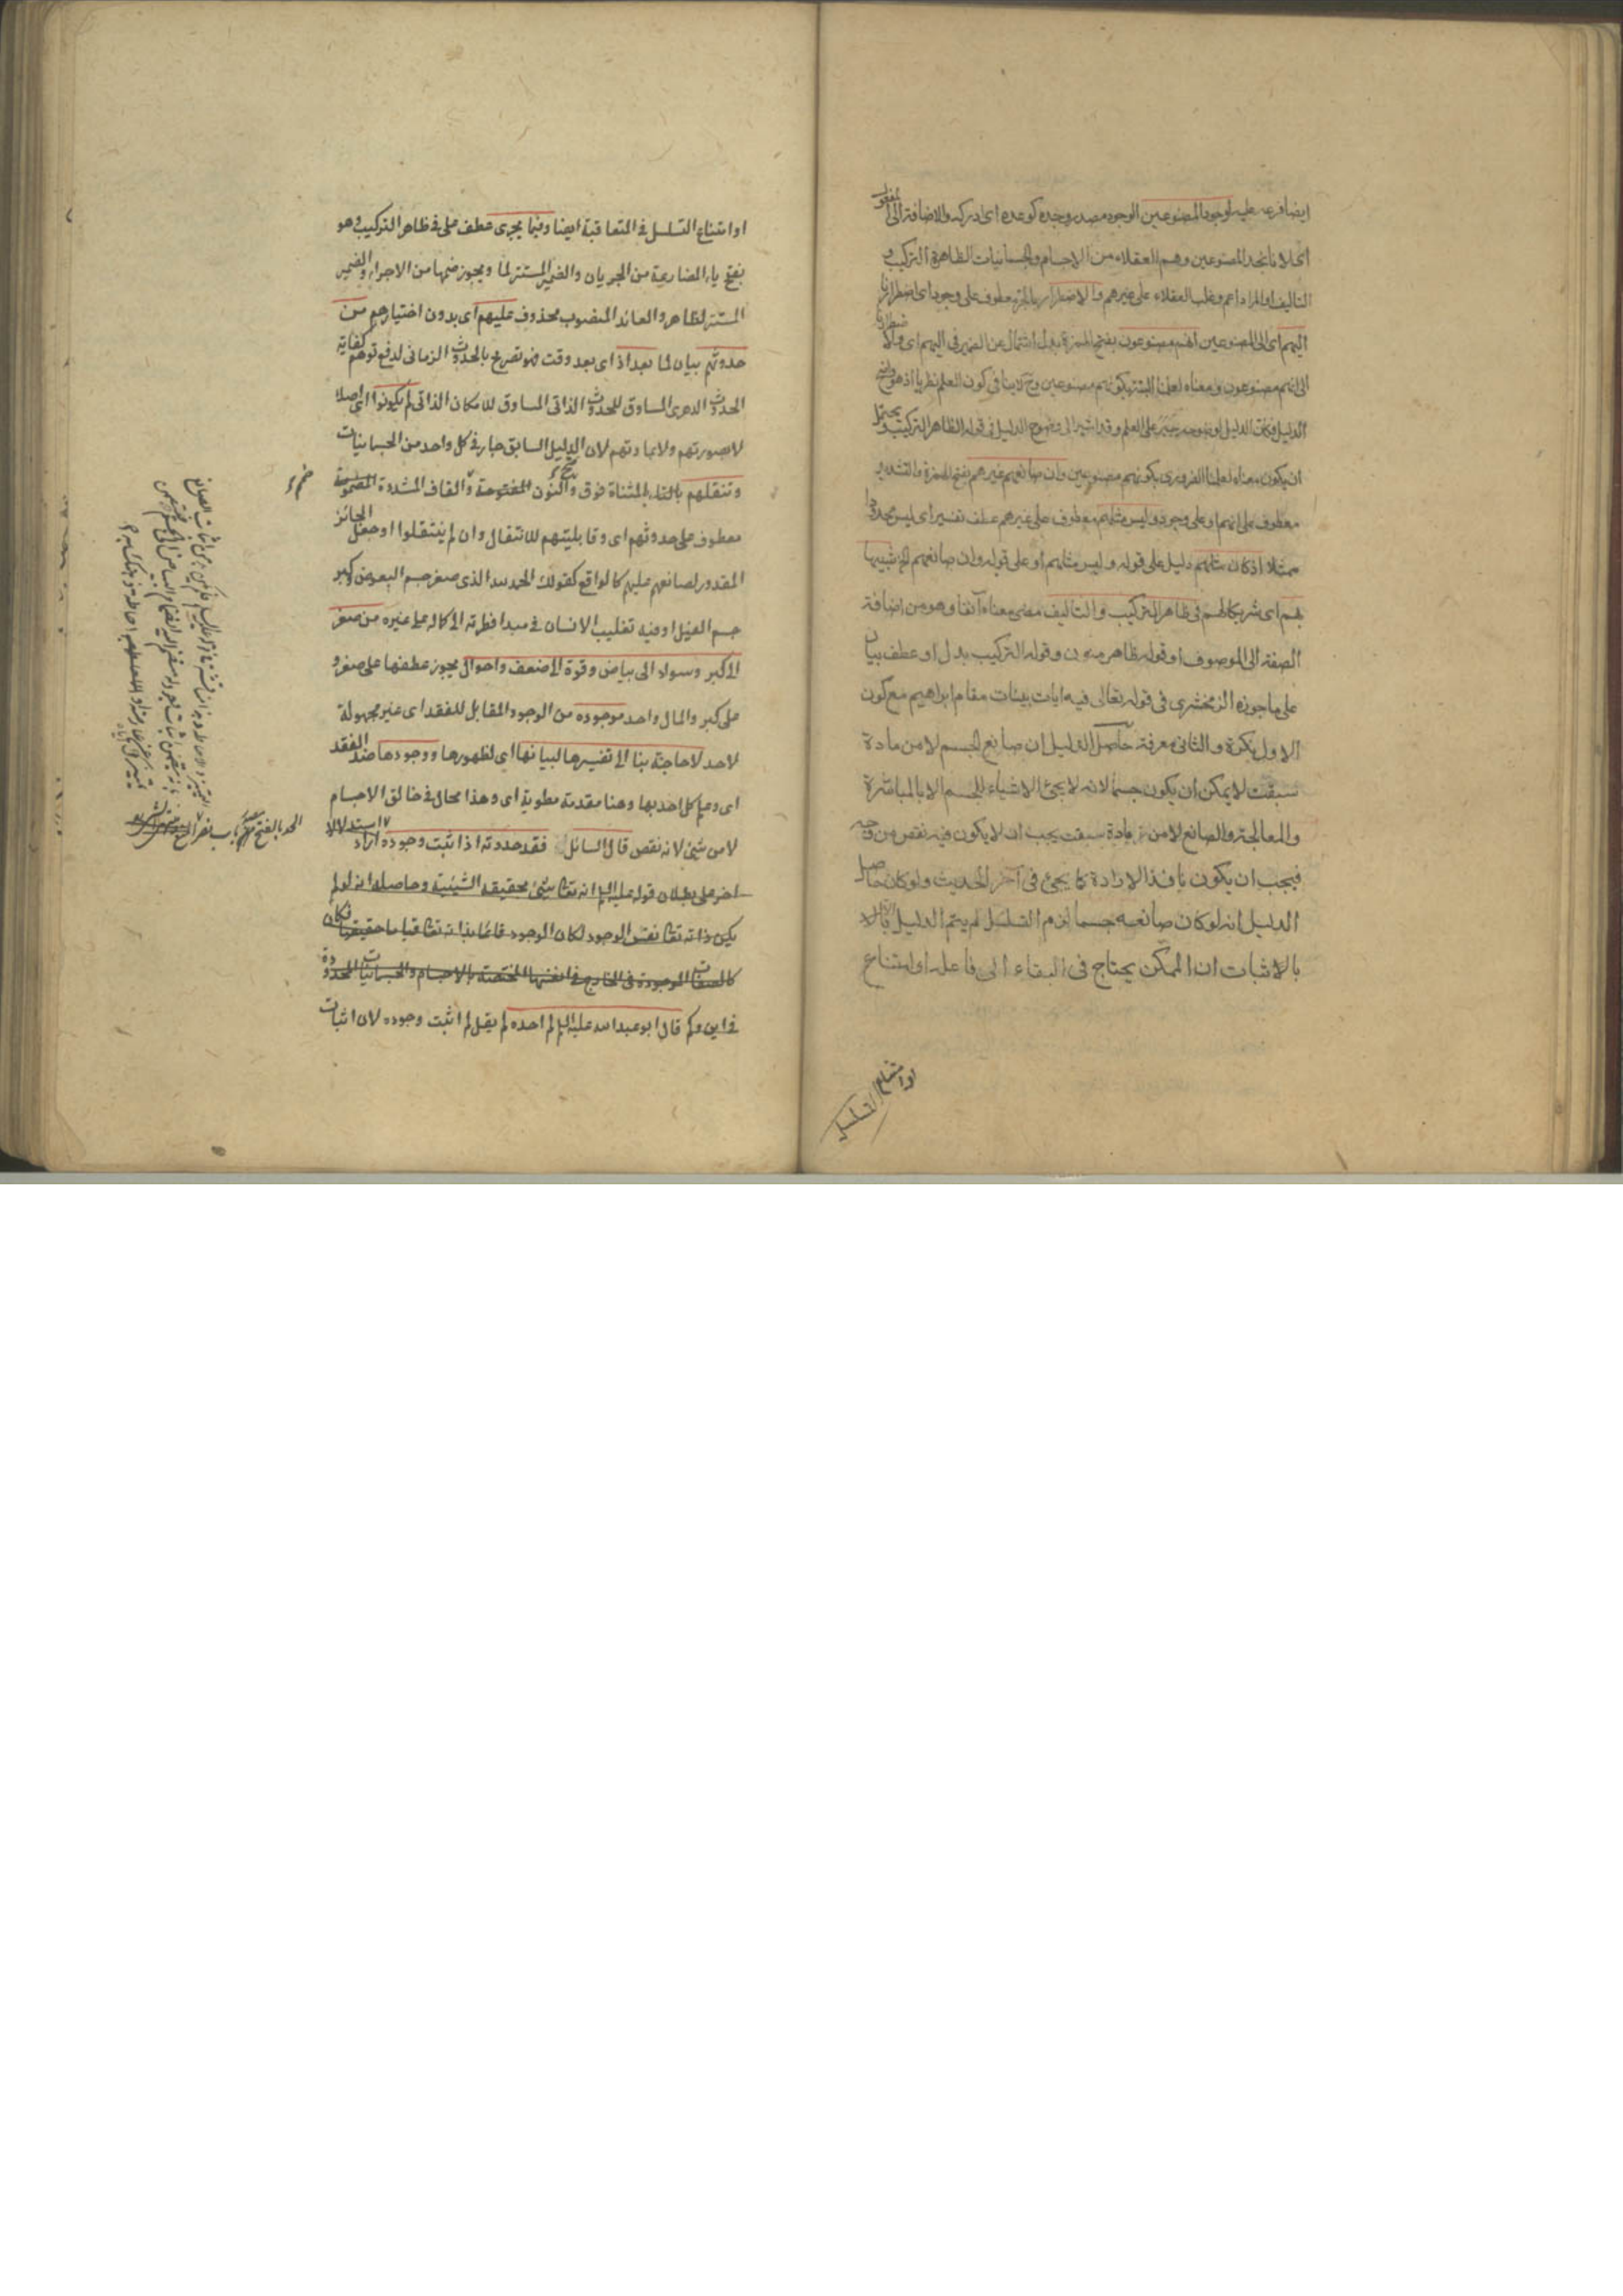 ايضا فرعه عليه لوجود المصنوعين الوجود مصدر وجده كوعده اى ادركه والاضافة الى المفعول
اى لانا نجد المصنوعين وهم العقلاء من الاجسام والجسمانيات الظاهرة التركيب و
التاليف او المراد اعم وغلب العقلاء على غيرهم والاضطرار بالجر معطوف على وجود اى اضطرارنا
اليهم اى الى المصنوعين انهم مصنوعون بفتح الهمزة بدل اشتمال عن الضمير فى اليهم اى والاضطرار
الى انهم مصنوعون ومعناه لعلمنا بكونهم مصنوعين وح لا ينافى كون العلم نظريا اذ هو واضح
الدليل فكان الدليل او ضوحه جبر على العلم وقد اشير الى وضوح الدليل فى قوله الظاهر التركيب ويحتمل
ان يكون معناه لعلمنا الضرورى بكونهم مصنوعين وان صانعهم غيرهم بفتح الهمزة والتشديد
معطوف على انهم او على وجود وليس مثلهم معطوف على غيرهم عطف تفسير اى ليس محدودا
ممثلا اذ كان مثلهم دليل على قوله وليس مثلهم او على قوله وان صانعهم الخ شبيها
بهم اى شريكا لهم فى ظاهر التركيب والتاليف مضى معناه آنفا وهو من اضافة
الصفة الى الموصوف او قوله ظاهر منون وقوله التركيب بدل او عطف بيان
على ما جوزه الزمخشرى فى قوله تعالى فيه ايات بينات مقام ابراهيم مع كون
الاول نكرة والثانى معرفة حاصل الدليل ان صانع الجسم لا من مادة
سبقت لا يمكن ان يكون جسما لانه لا يجئ الاشياء للجسم الا بالمباشرة
والمعالجة والصانع لا من مادة سبقت يجب ان لا يكون فيه نقص من وجه
فيجب ان يكون نافذ الارادة كما يجئ فى آخر الحديث ولو كان حاصل
الدليل انه لو كان صانعه جسما لزم التسلسل لم يتم الدليل الا
بالاثبات ان الممكن يحتاج فى البقاء الى فاعله او امتناع
او امتناع التسلسل
او امتناع التسلسل فى المتعاقبة ايضا وفيما يجرى عطف على فى ظاهر التركيب وهو
بفتح ياء المضارعة من الجريان والضمير المستتر لما ويجوز ضمها من الاجراء والضمير
المستتر لظاهر والعائد المنصوب محذوف عليهم اى بدون اختيارهم من
حدوثهم بيان لما بعد اذ اى بعد وقت فهو تصريح بالحدوث الزمانى لدفع توهم كفاية
الحدوث الدهرى المساوق للحدوث الذاتى المساوق للامكان الذاتى لم يكونوا اى اصلا
لا بصورتهم ولا بمادتهم لان الدليل السابق جار فى كل واحد من الجسمانيات
وتنقلهم بالتاء المثناة فوق والنون المفتوحة والقاف المشددة المضمومة
معطوف على حدوثهم اى وقابليتهم للانتقال وان لم ينتقلوا او جعل الجائز
المقدور لصانعهم عليهم كالواقع كقولك الحمد لله الذى صغر جسم البعوض وكبر
جسم الفيل او فيه تغليب الانسان فى مبدا فطرته الى كماله على غيره من صغر
الى كبر وسواد الى بياض وقوة الى ضعف واحوال يجوز عطفها على صغر و
على كبر والمال واحد موجودة من الوجود المقابل للفقد اى غير مجهولة
لاحد لا حاجة بنا الى تفسيرها لبيانها اى لظهورها ووجودها ضد الفقد
اى وعلم كل احد بها وهنا مقدمة مطوية اى وهذا محال فى خالق الاجسام
لا من شئ لانه نقص قال السائل فقد حددته اذ اثبت وجوده اراد استدلالا
اخر على بطلان قوله عليه السلام انه تعالى شئ بحقيقة الشيئية وحاصله انه لو لم
يكن ذاته تعالى نفس الوجود لكان الوجود قائما بذاته تعالى قياما حقيقيا فكان
كالصفات الموجودة فى الخارج فى انفسها المختصة بالاجسام والجسمانيات المحدودة
فى اين وكم قال ابو عبد الله عليه السلام لم احده لم يقل لم اثبت وجوده لان اثبات